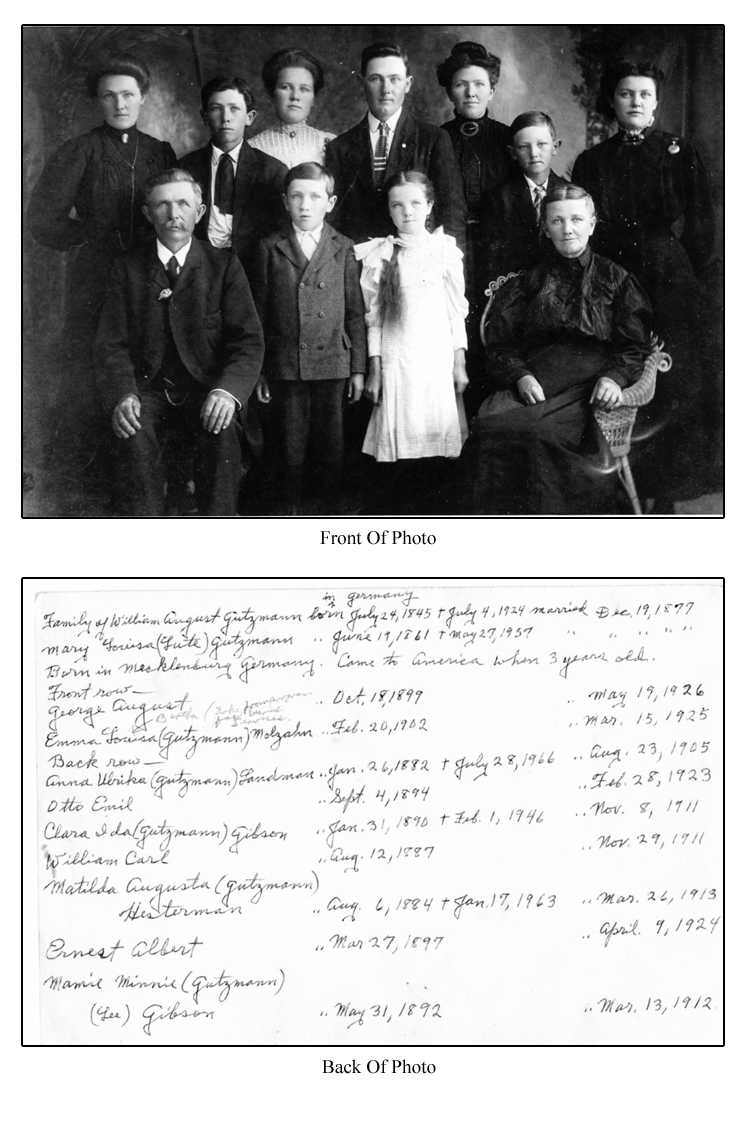 Front Of Photo
in germany
Family of William August Gutzmann born July 24, 1845 + July 4, 1924 married Dec. 19, 1877
Mary Louisa (Lute) Gutzmann " June 19, 1861 + May 27, 1937 " " " " "
Born in Mecklenburg Germany. Came to America when 3 years old.
Front row—
George August " Oct. 18, 1899 " May 19, 1926
Bertha
Emma Louisa (Gutzmann) Molzahn " Feb. 20, 1902 " Mar. 15, 1925
Back row—
Anna Ulrika (Gutzmann) Landman " Jan. 26, 1882 + July 28, 1966 " Aug. 23, 1905
Otto Emil " Sept. 4, 1894 " Feb. 28, 1923
Clara Ida (Gutzmann) Gibson " Jan. 31, 1890 + Feb. 1, 1946 " Nov. 8, 1911
William Carl " Aug. 12, 1887 " Nov. 29, 1911
Matilda Augusta (Gutzmann)
Hesterman " Aug. 6, 1884 + Jan. 17, 1963 " Mar. 26, 1913
Ernest Albert " Mar 27, 1897 " April. 9, 1924
Mamie Minnie (Gutzmann)
(Lee) Gibson " May 31, 1892 " Mar. 13, 1912
Back Of Photo